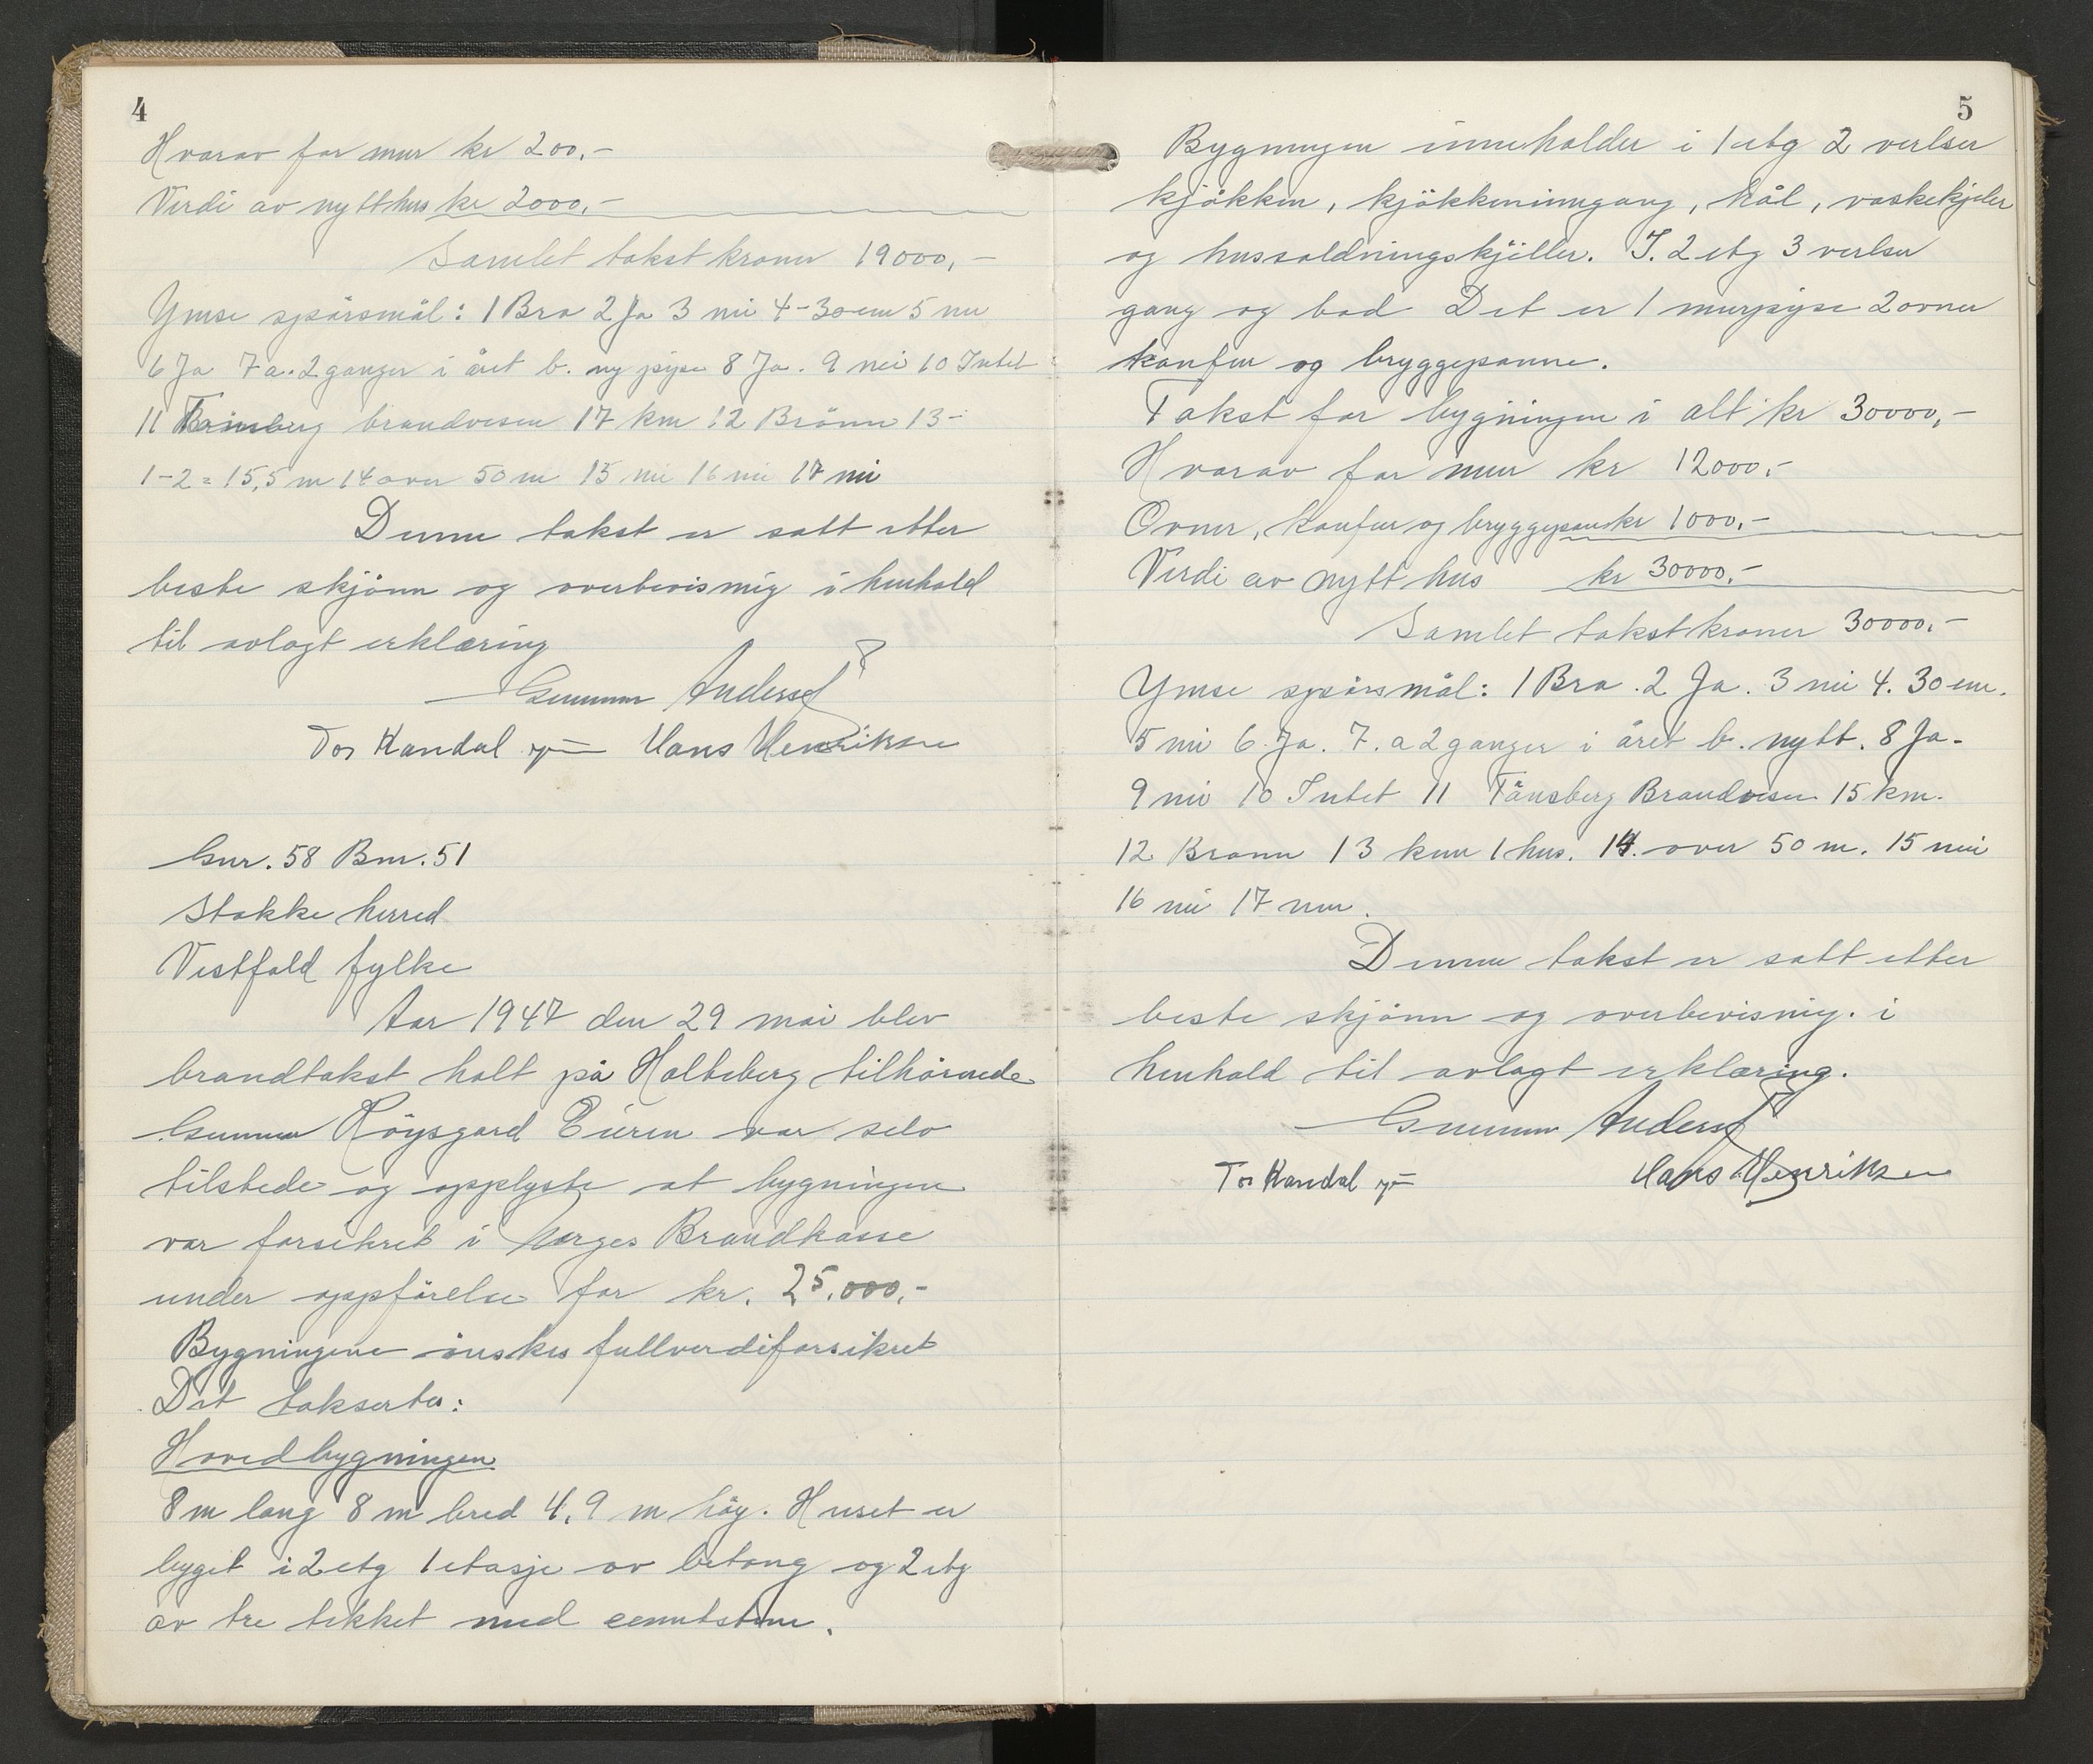 4
Hvorav for mur kr 200,-
Verdi av nytt hus kr 2000,-
Samlet takst kroner 19000,-
Ymse spörsmål: 1 Bra 2 Ja 3 nei 4-30 cm 5 nei
6 Ja 7 a. 2 ganger i året b. ny pipe 8 Ja. 9 nei 10 Intet
11 Tönsberg brandvesen 17 km 12 Brönn 13-
1-2 = 15,5 m 14 over 50 m 15 nei 16 nei 17 nei
Denne takst er satt etter
beste skjönn og overbevisnig i henhold
til avlagt erklæring
Gunnar Anders
Tor Kandal Hans Henriksen
Gnr. 58 Bnr. 51
Stokke herred
Vestfold fylke
Aar 1947 den 29 mai blev
brandtakst holt på Holteberg tilhörende
Gunnar Röysgard Eieren var selv
tilstede og opplyste at bygningen
var forsikret i Norges Brandkasse
under oppförelse for kr. 25.000,-
Bygningene önskes fullverdiforsikret
Det takserter:
Hovedbygningen
8 m lang 8 m bred 4,9 m höy. Huset er
byget i 2 etg 1 etasje av betong og 2 etg
av tre tekket med cementsten.
5
Bygningen inneholder i 1 etg 2 verlser
kjökken, kjökkeninngang, hål, vaskekjeler
og hussoldningskjeller. I. 2 etg 3 verlser
gang og bad Det er 1 murpipe 2 ovner
komfur og bryggepanne.
Takst for bygningen i alt kr 30000,-
Hvorav for mur kr 12000,-
Ovner, komfur og bryggepan kr 1000,-
Verdi av nytt hus kr 30000,-
Samlet takst kroner 30000,-
Ymse spörsmål: 1 Bra. 2 Ja. 3 nei 4. 30 cm.
5 nei 6. Ja. 7. a 2 ganger i året b. nytt. 8 Ja.
9 nei 10 Intet 11 Tönsberg Brandvesen 15 km.
12 Brönn 13 kun 1 hus. 14. over 50 m. 15 nei
16 nei 17 nei.
Denne takst er satt etter
beste skjönn og overbevisnig. i
henhold til avlagt erklæring.
Gunnar Anders
Tor Kandal Hans Henriksen